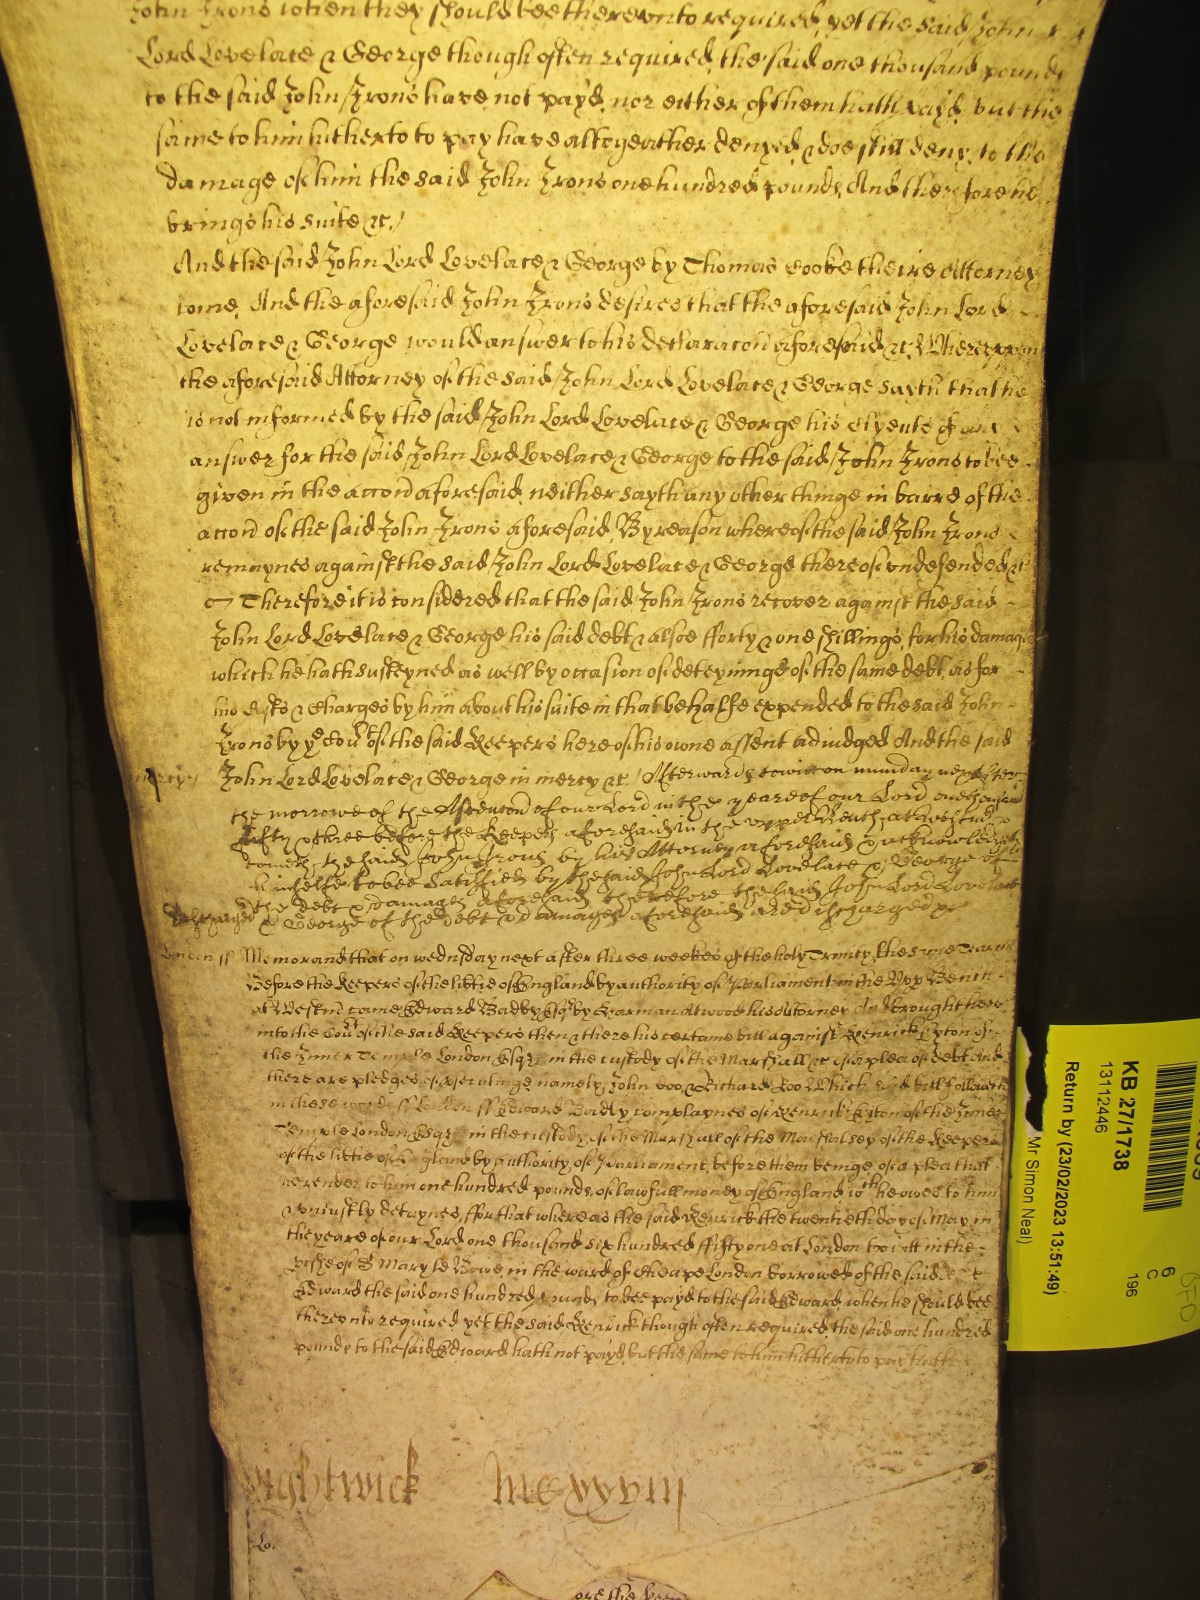 John Irons when they should bee therevnto required, yet the said John
Lord Lovelace & George though often required, the said one thousand pounds
to the said John Irons have not payd, nor either of them hath payd, but the
same to him hitherto to pay have altogeather denyed, & doe still deny, to the
damage of him the said John Irons one hundred pounds, And therefore he
brings his suite &c./
And the said John Lord Lovelace & George by Thomas Cooke theire Attorney
come, And the aforesaid John Irons desires that the aforesaid John Lord
Lovelace & George would answer to his declaracon aforesaid &c, Whereuppon
the aforesaid Attorney of the said John Lord Lovelace & George sayth that he
is not informed by the said John Lord Lovelace & George his Clyents of any
answer for the said John Lord Lovelace & George to the said John Irons to bee
given in the accon aforesaid, neither sayth any other thinge in barre of the
accon of the said John Irons aforesaid, By reason whereof the said John Irons
remaynes against the said John Lord Lovelace & George thereof vndefended &c
Therefore it is considered that the said John Irons recover against the said
John Lord Lovelace & George his said debt, & alsoe fforty & one shillings, for his damages
which he hath susteyned as well by occasion of deteyninge of the same debt, as for
his Costs & Charges by him about his suite in that behalfe expended to the said John
Irons by ye Court of the said Keepers here of his owne assent adiudged And the said
mercy
John Lord Lovelace & George in mercy &c / Afterwards towitt on munday next after
the morrowe of the Ascencon of our Lord in the yeare of our Lord one thousand
fifty & three before the Keepers aforesaid in the vpper Bench at Westm
cometh the said John Irons by his Attorney aforesaid & acknowledgeth
himselfe to bee satisfied by the said John Lord Lovelace & George of
the debt & damages aforesaid therefore the said John Lord Lovelace
discharged
& George of the debt & damages aforesaid are discharged &c
London ss Memorand that on wednsday next after three weekes of the holy Trinity, this same Tearme
Before the Keepers of the libtie of England by authority of Parliament in the Vpp Bench
at Westm came Edward Badby Esqr by Harman Atwood his Attorney And brought here
into the Court of the said Keepers then & there his certaine bill against Kenrick Eyton of
the Inner Temple London Esqr in the custody of the Marshall &c of a plea of debt And
there are pledges of prosecutinge namely, John Doo, & Richard Roo Which said bill followeth
in these words ss London ss Edward Badby complaynes of Kenrick Eyton of the Inner
Temple London Esqr in the custody of the Marshall of the Marshalsey of the Keepers
of the libtie of England by authority of Parliament, before them beinge of a plea that
he render to him one hundred pounds, of lawfull money of England wch he owes to him
& vniustly detaynes, ffor that whereas the said Kenrick the twentieth day of May, in
the yeare of our Lord one thousand six hundred ffifty one at London towitt in the
pishe of St Mary le Bowe, in the ward of Cheape London borrowed of the said
Edward the said one hundred pounds to bee payd to the said Edward, when he should bee
therevnto required yet the said Kenrick though often required, the said one hundred
pounds to the said Edward hath not payd, but the same to him hitherto to pay hath
Wightwick MCCxxxviij
Lo.
ore the keep
KB 27/1738
13112446
Return by (23/02/2023 13:51:49)
Mr Simon Neal)
6
C
196